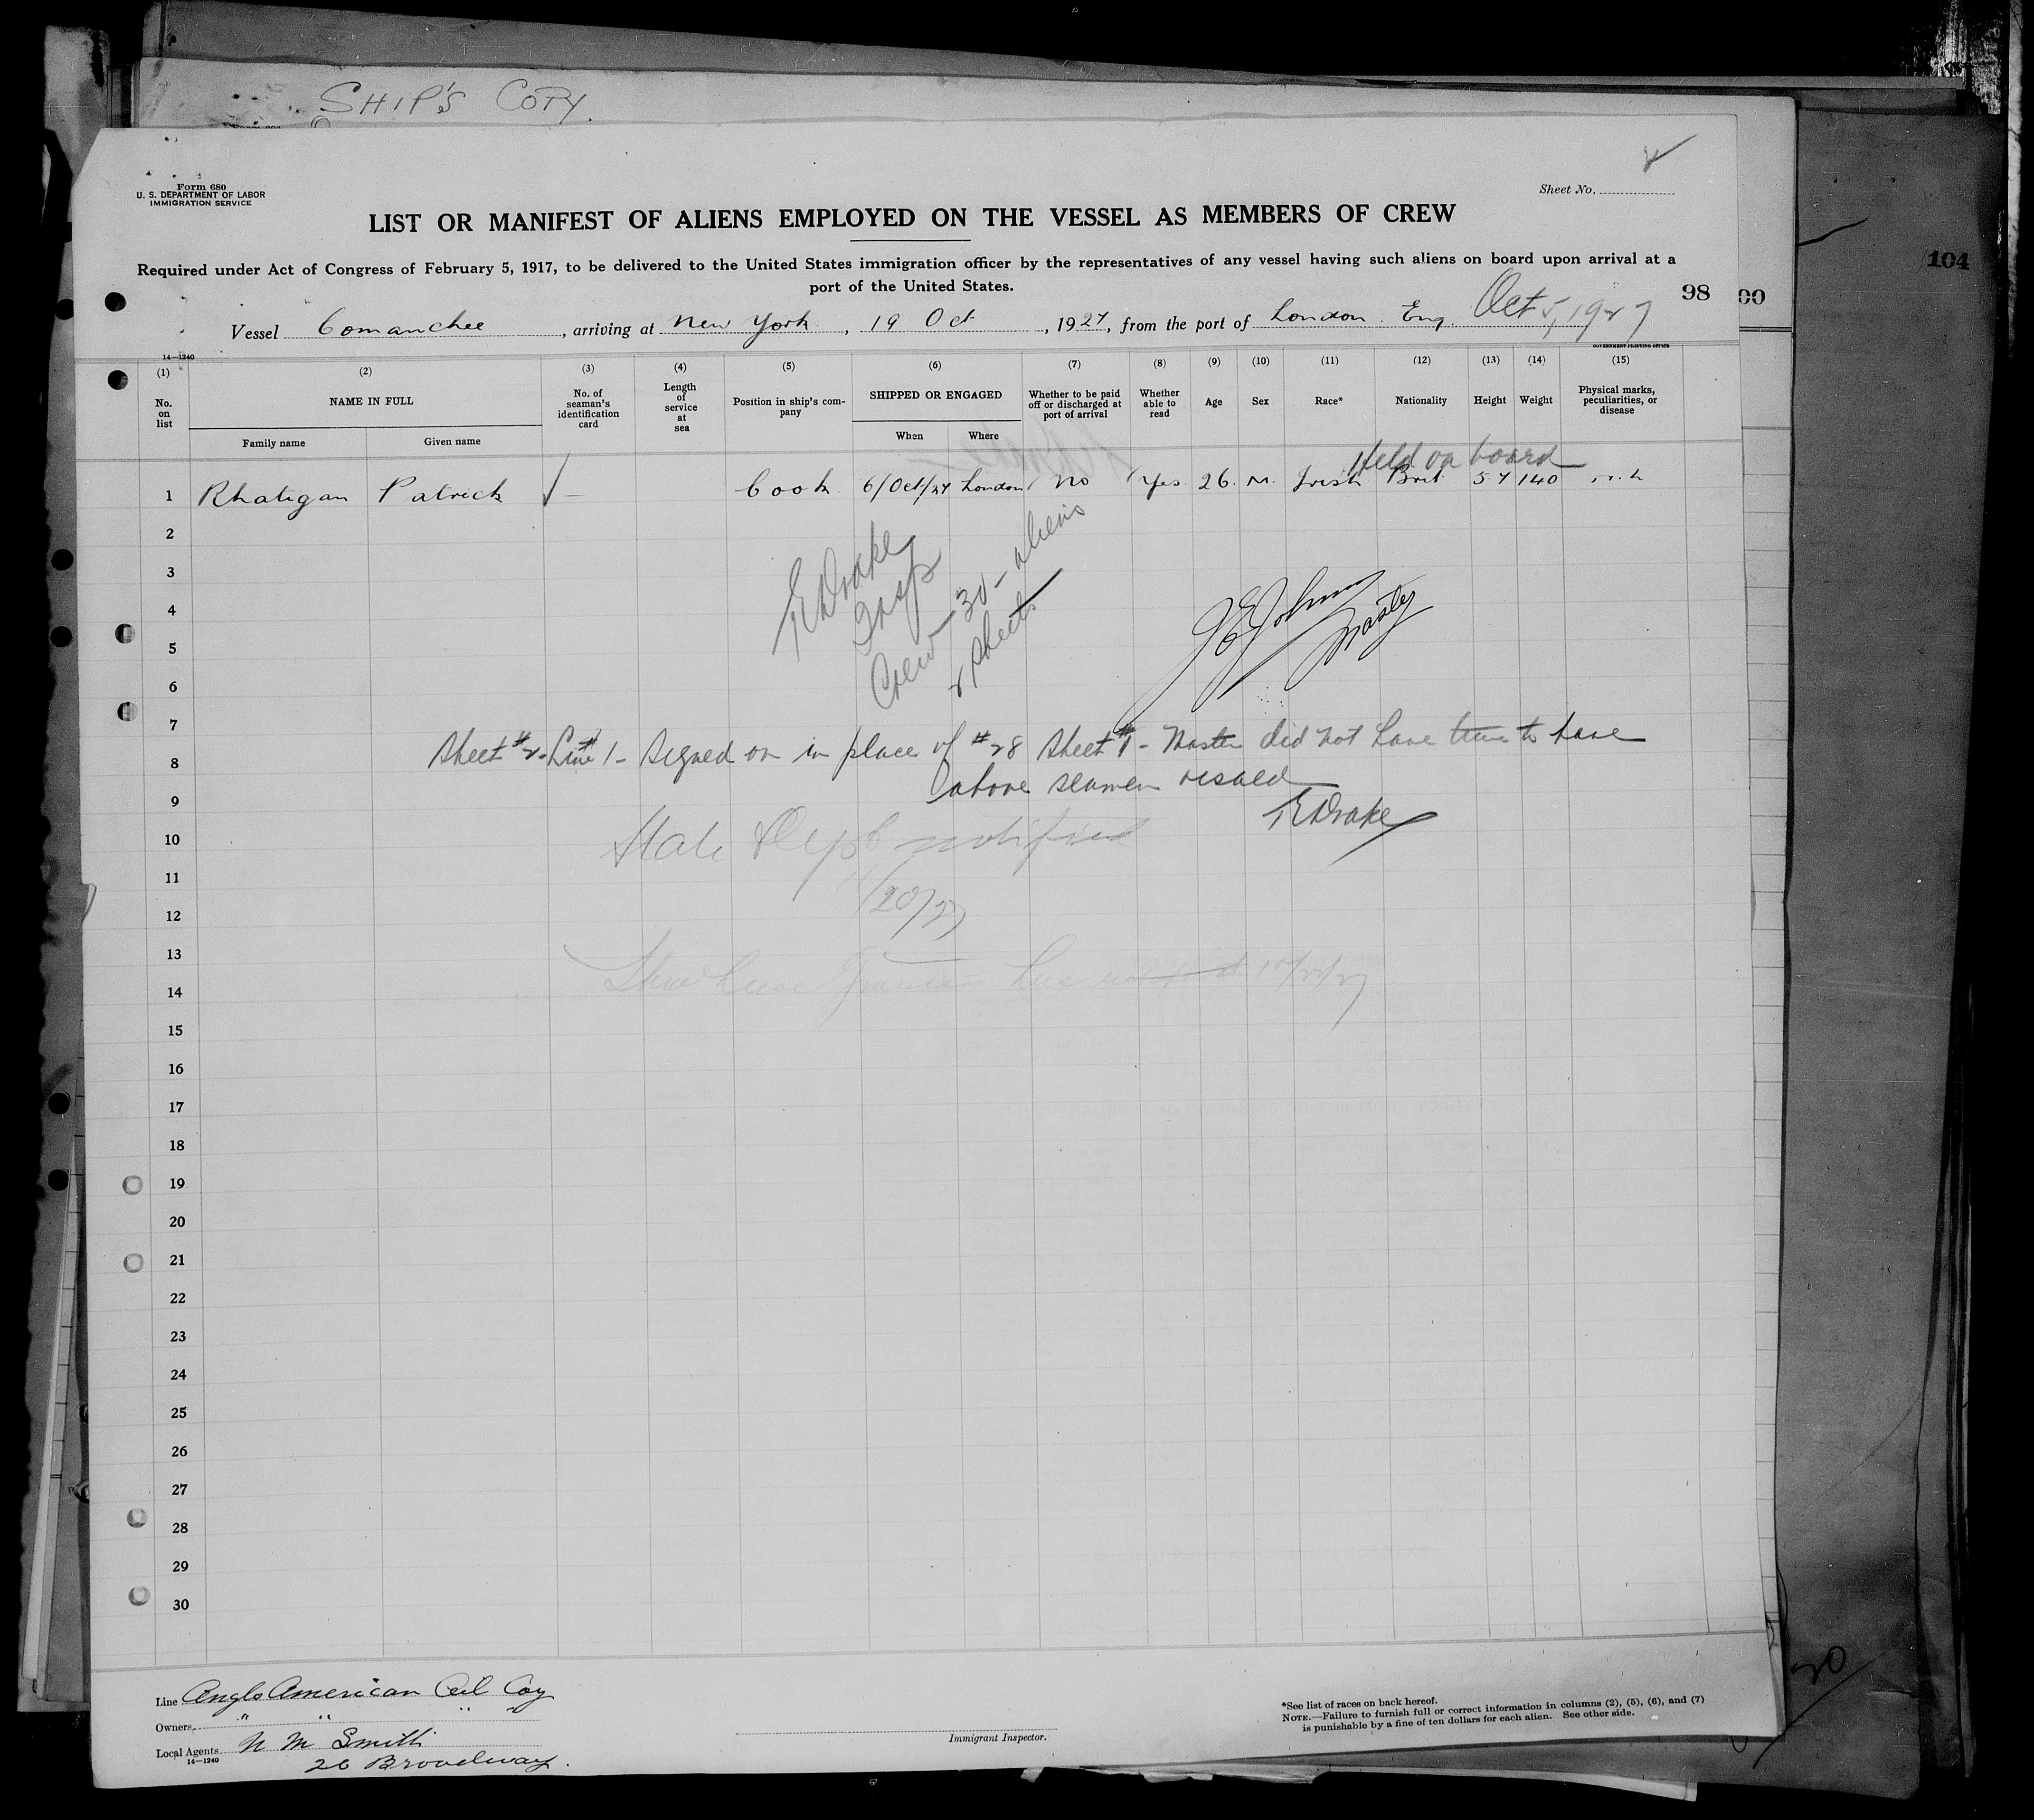 SHIP'S COPY.
Form 680
U. S. DEPARTMENT OF LABOR
IMMIGRATION SERVICE
Sheet No. 2
LIST OR MANIFEST OF ALIENS EMPLOYED ON THE VESSEL AS MEMBERS OF CREW
Required under Act of Congress of February 5, 1917, to be delivered to the United States immigration officer by the representatives of any vessel having such aliens on board upon arrival at a
port of the United States.
104
98
00
Vessel Comanchee, arriving at New York, 19 Oct, 1927, from the port of London Eng. Oct 5, 1927
14—1240
GOVERNMENT PRINTING OFFICE
(1) (2) (3) (4) (5) (6) (7) (8) (9) (10) (11) (12) (13) (14) (15)
No. on list
NAME IN FULL
Family name
Given name
No. of seaman's identification card
Length of service at sea
Position in ship's company
SHIPPED OR ENGAGED
When
Where
Whether to be paid off or discharged at port of arrival
Whether able to read
Age
Sex
Race*
Nationality
Height
Weight
Physical marks, peculiarities, or disease
Held on board
1 Rhatigan Patrick ✓ — Cook 6/Oct/27 London No Yes 26 M. Irish Brit 5 7 140
2
3
4
5
6
7
8
9
10
11
12
13
14
15
16
17
18
19
20
21
22
23
24
25
26
27
28
29
30
TE Drake
Insp
Crew - 30 - aliens
2 sheets
Master
Sheet #2 - Line 1 - Signed on in place of #28 Sheet #1 - Master did not have time to have
above seamen visaed
TE Drake
State Dept notified
/20/27
Line Anglo American Oil Coy
Owners " " " "
Local Agents N M Smith
14—1240
26 Broadway.
Immigrant Inspector.
*See list of races on back hereof.
NOTE.—Failure to furnish full or correct information in columns (2), (5), (6), and (7)
is punishable by a fine of ten dollars for each alien. See other side.